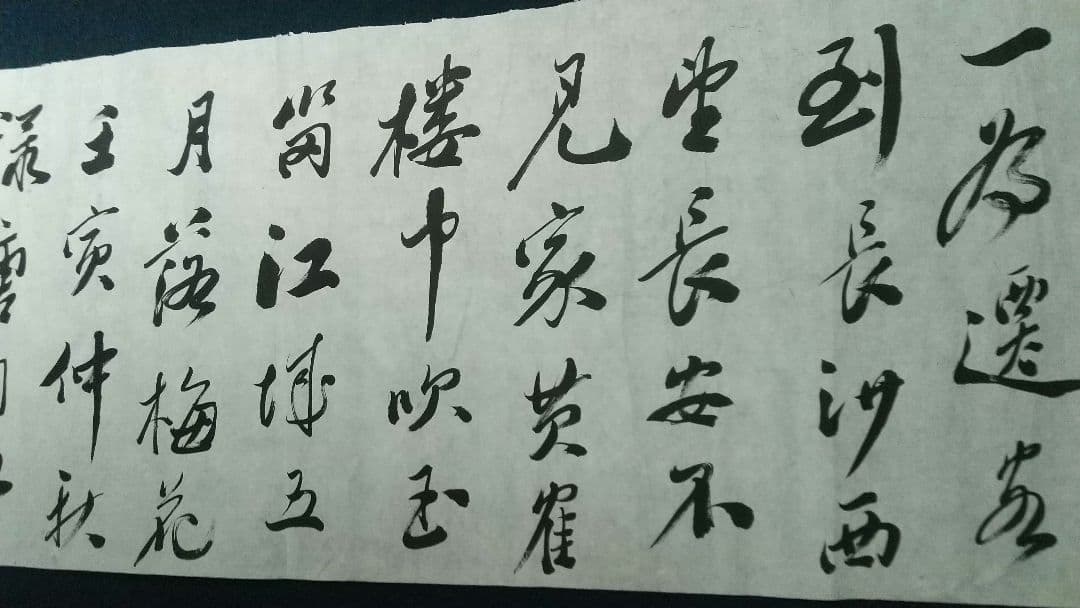 一为遷客
到長沙西
望長安不
見家黄崔
楼中吹玉
笛江城五
月落梅花
壬寅仲秋